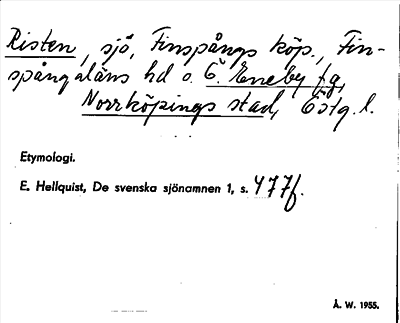 Risten, sjö, Finspångs köp., Fin-
spångaläns hd o. Ö. Eneby fg,
Norrköpings stad, Östg. l.
Etymologi.
E. Hellquist, De svenska sjönamnen 1, s. 477f.
Å. W. 1955.